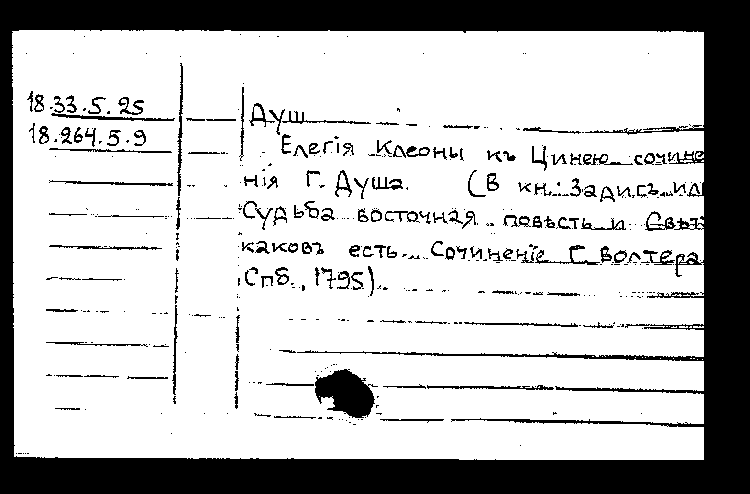 18.33.5.25
18.264.5.9
Душ
Елегiя Клеоны къ Цинею сочине
нiя Г. Душа. (В кн.: Задигъ ил
Судьба восточная повѣсть и Свѣт
каковъ есть Сочиненiе Г. Волтера
Спб., 1795)